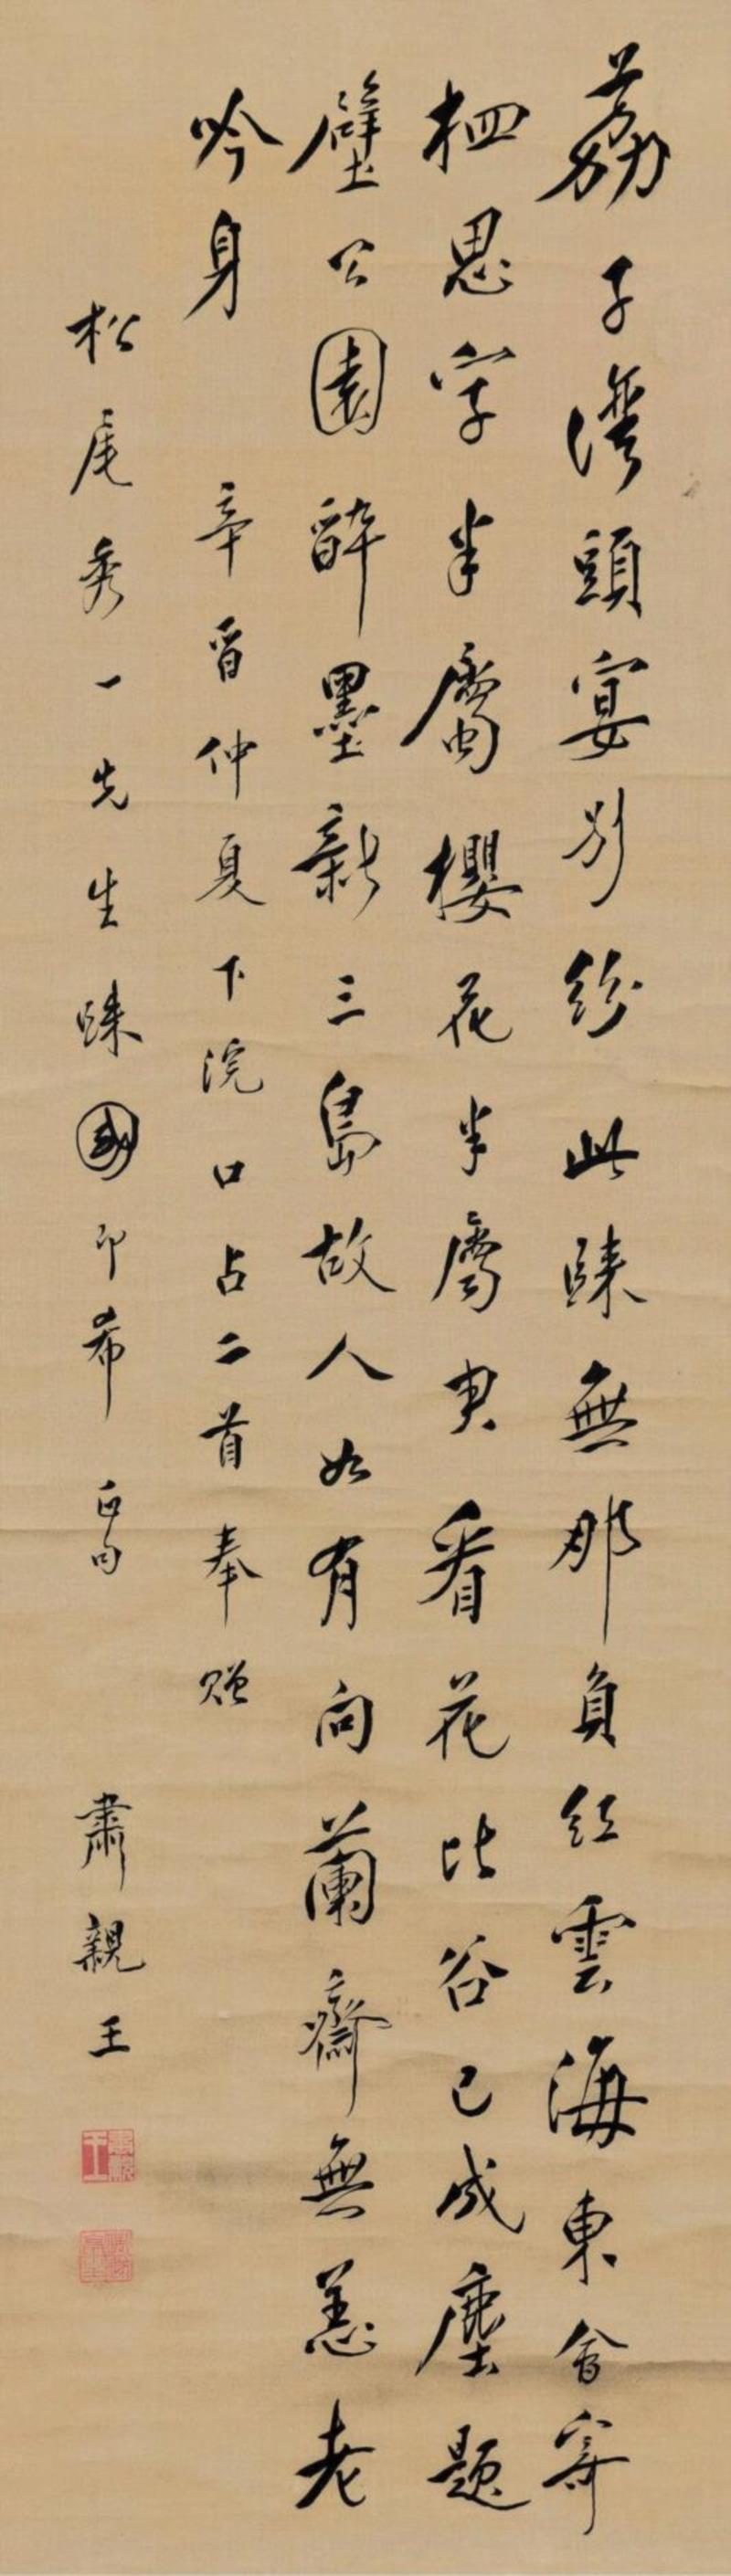 荔子灣頭宴別紛此賕無那負紅雲海東會寄
栖思字半屬櫻花半屬君看花比谷已成塵題
壁公園醉墨新三島故人如有向蘭齋無恙老
吟身 辛酉仲夏下浣口占二首奉贈
松尾秀一先生歸國即希正句 肅親王